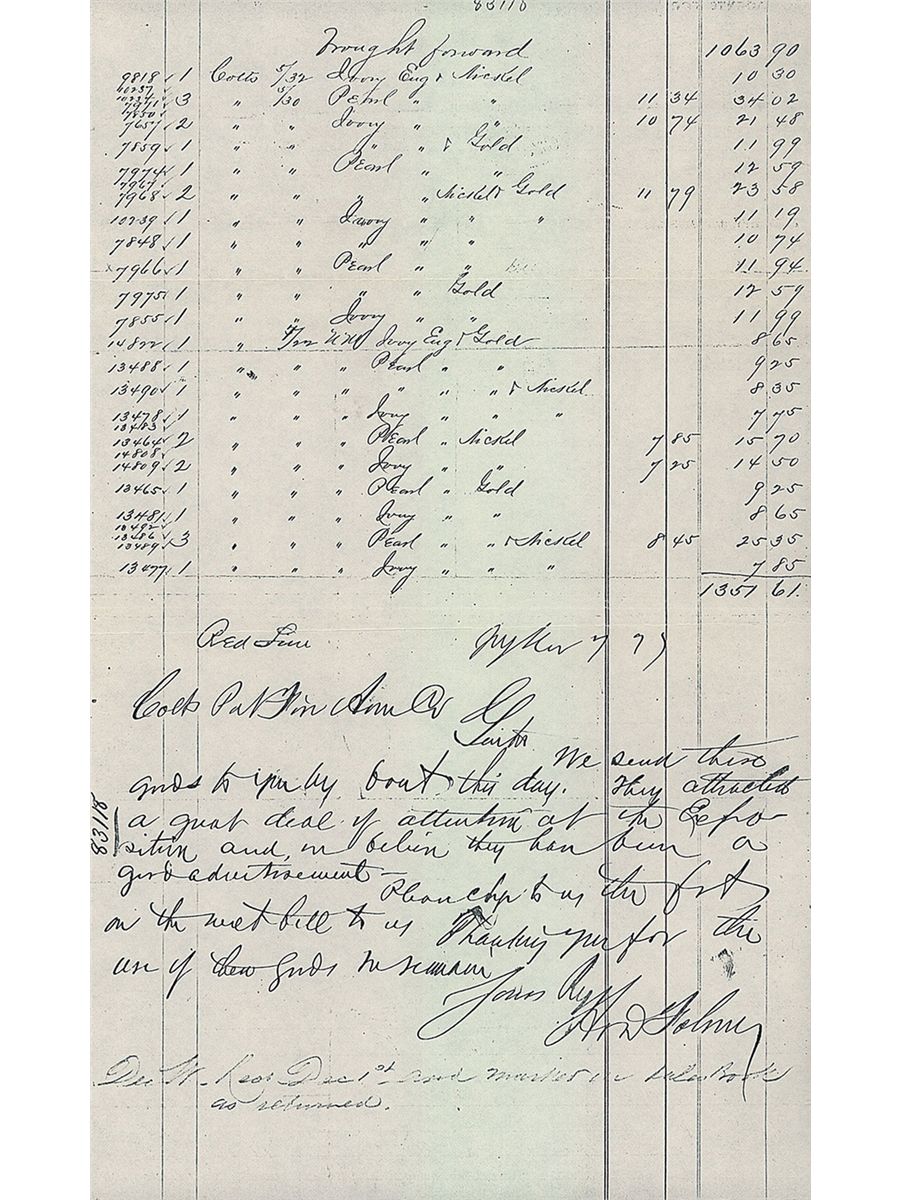 83118
Brought forward 1063 90
9818 1 Colts 5/32 Ivory Eng & Nickel 10 30
10257
10234
7971 3 " 5/30 Pearl " " 11 34 34 02
7850
7657 2 " " Ivory " " 10 74 21 48
7859 1 " " " " & Gold 11 99
7974 1 " " Pearl " " 12 59
7967
7968 2 " " " " Nickel & Gold 11 79 23 58
10239 1 " " Ivory " " " 11 19
7848 1 " " " " " 10 74
7966 1 " " Pearl " " 11 94
7975 1 " " " " Gold 12 59
7855 1 " " Ivory " " 11 99
14822 1 " Ivory Eng & Gold 8 65
13488 1 " " " Pearl " " 9 25
13490 1 " " " " " " & Nickel 8 35
13478 1 " " " Ivory " " " 7 75
13483
13464 2 " " " Pearl " Nickel 7 85 15 70
14808
14809 2 " " " Ivory " " 7 25 14 50
13465 1 " " " Pearl " Gold 9 25
13481 1 " " " Ivory " " 8 65
13492
13486
13489 3 " " " Pearl " " & Nickel 8 45 25 35
13477 1 " " " Ivory " " " 7 85
1351 61
Red 7 77
Colts Pat Fire Arm Co
Gents
We send these
goods to you by boat this day. They attracted
a great deal of attention at the Expo-
83118
sition and, we believe they have been a
good advertisement –
Please chge to us the frt
on the next bill to us Thanking you for the
use of these goods we remain
Yours Resp
Dec 1st and marked in Sales Book
as returned.